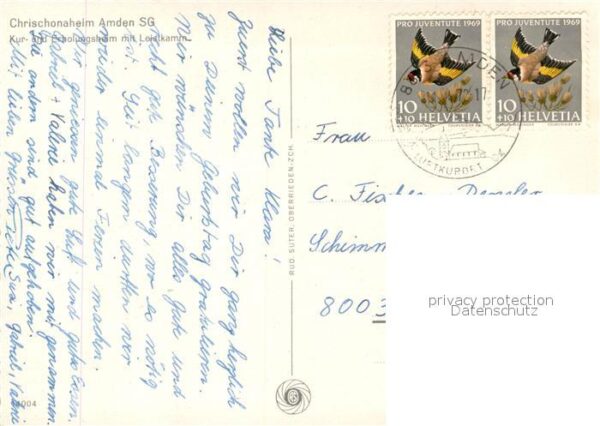 Chrischonaheim Amden SG
Kur- und Erholungsheim mit Leistkamm
Liebe Tante Klara!
Zuerst wollen wir Dir ganz herzlich
zu Deinem Geburtstag gratulieren.
Wir wünschen Dir alles Gute und
recht gute Besserung, wo es nötig
ist. Seit langem durften wir
wieder einmal Ferien machen.
Wir geniessen gute Luft und gutes Essen.
Gabriel + Valerie haben wir mitgenommen.
Die andern sind gut aufgehoben!
Mit lieben Grüssen
Gabriel, Valerie
14004
RUD. SUTER, OBERRIEDEN-ZCH.
PRO JUVENTUTE 1969
10
+10 HELVETIA
PRO JUVENTUTE 1969
10
+10 HELVETIA
AMDEN
LUFTKURORT
Frau
C. Fischer
Schimm
8003
privacy protection
Datenschutz